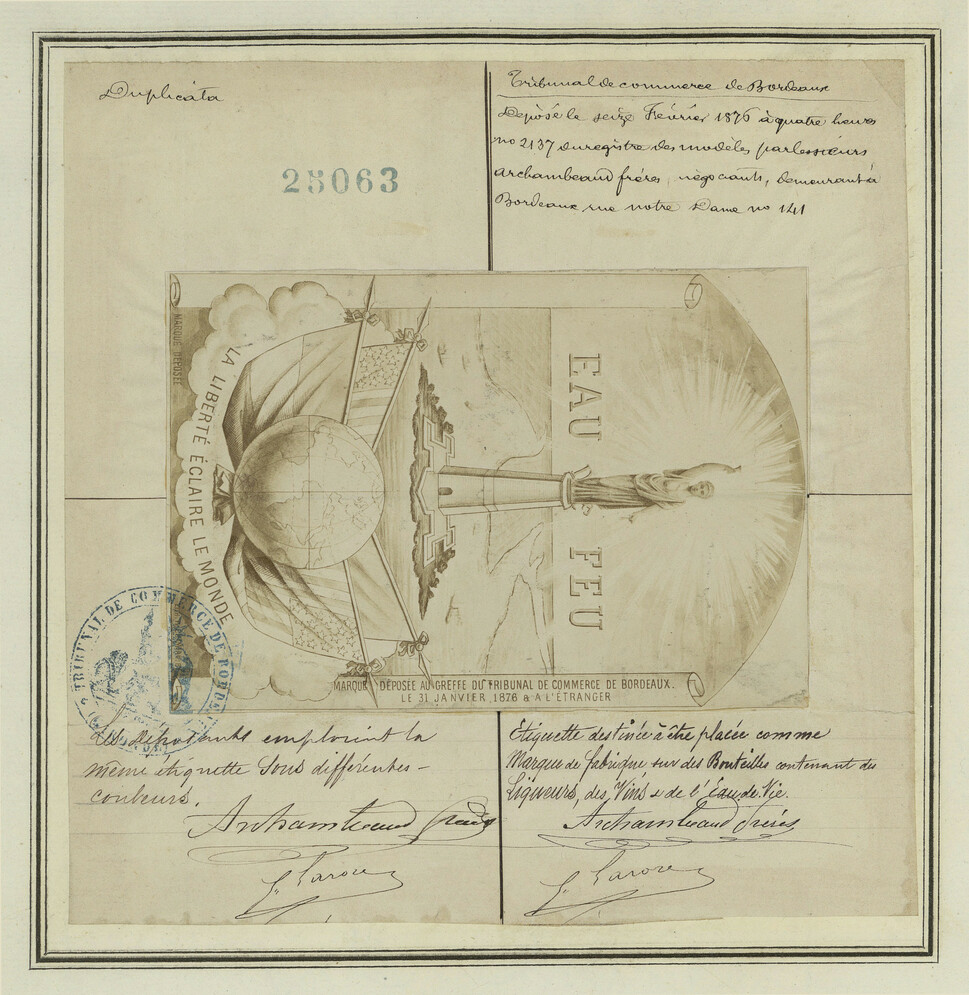 Duplicata
25063
Tribunal de commerce de Bordeaux
Déposé le seize Février 1876 à quatre heures
no 2137 du registre des modèles par les sieurs
Archambeaud frères, négociants, demeurant à
Bordeaux rue notre Dame no 141
MARQUE DÉPOSÉE
LA LIBERTÉ ÉCLAIRE LE MONDE
EAU FEU
MARQUE DÉPOSÉE AU GREFFE DU TRIBUNAL DE COMMERCE DE BORDEAUX.
LE 31 JANVIER 1876 & A L'ÉTRANGER
TRIBUNAL DE COMMERCE DE BORDEAUX
Les déposants emploient la
même étiquette sous différentes
couleurs.
Archambeaud frères
Étiquette destinée à être placée comme
Marque de fabrique sur des Bouteilles contenant des
Liqueurs, des Vins & de l'Eau-de-Vie.
Archambeaud frères